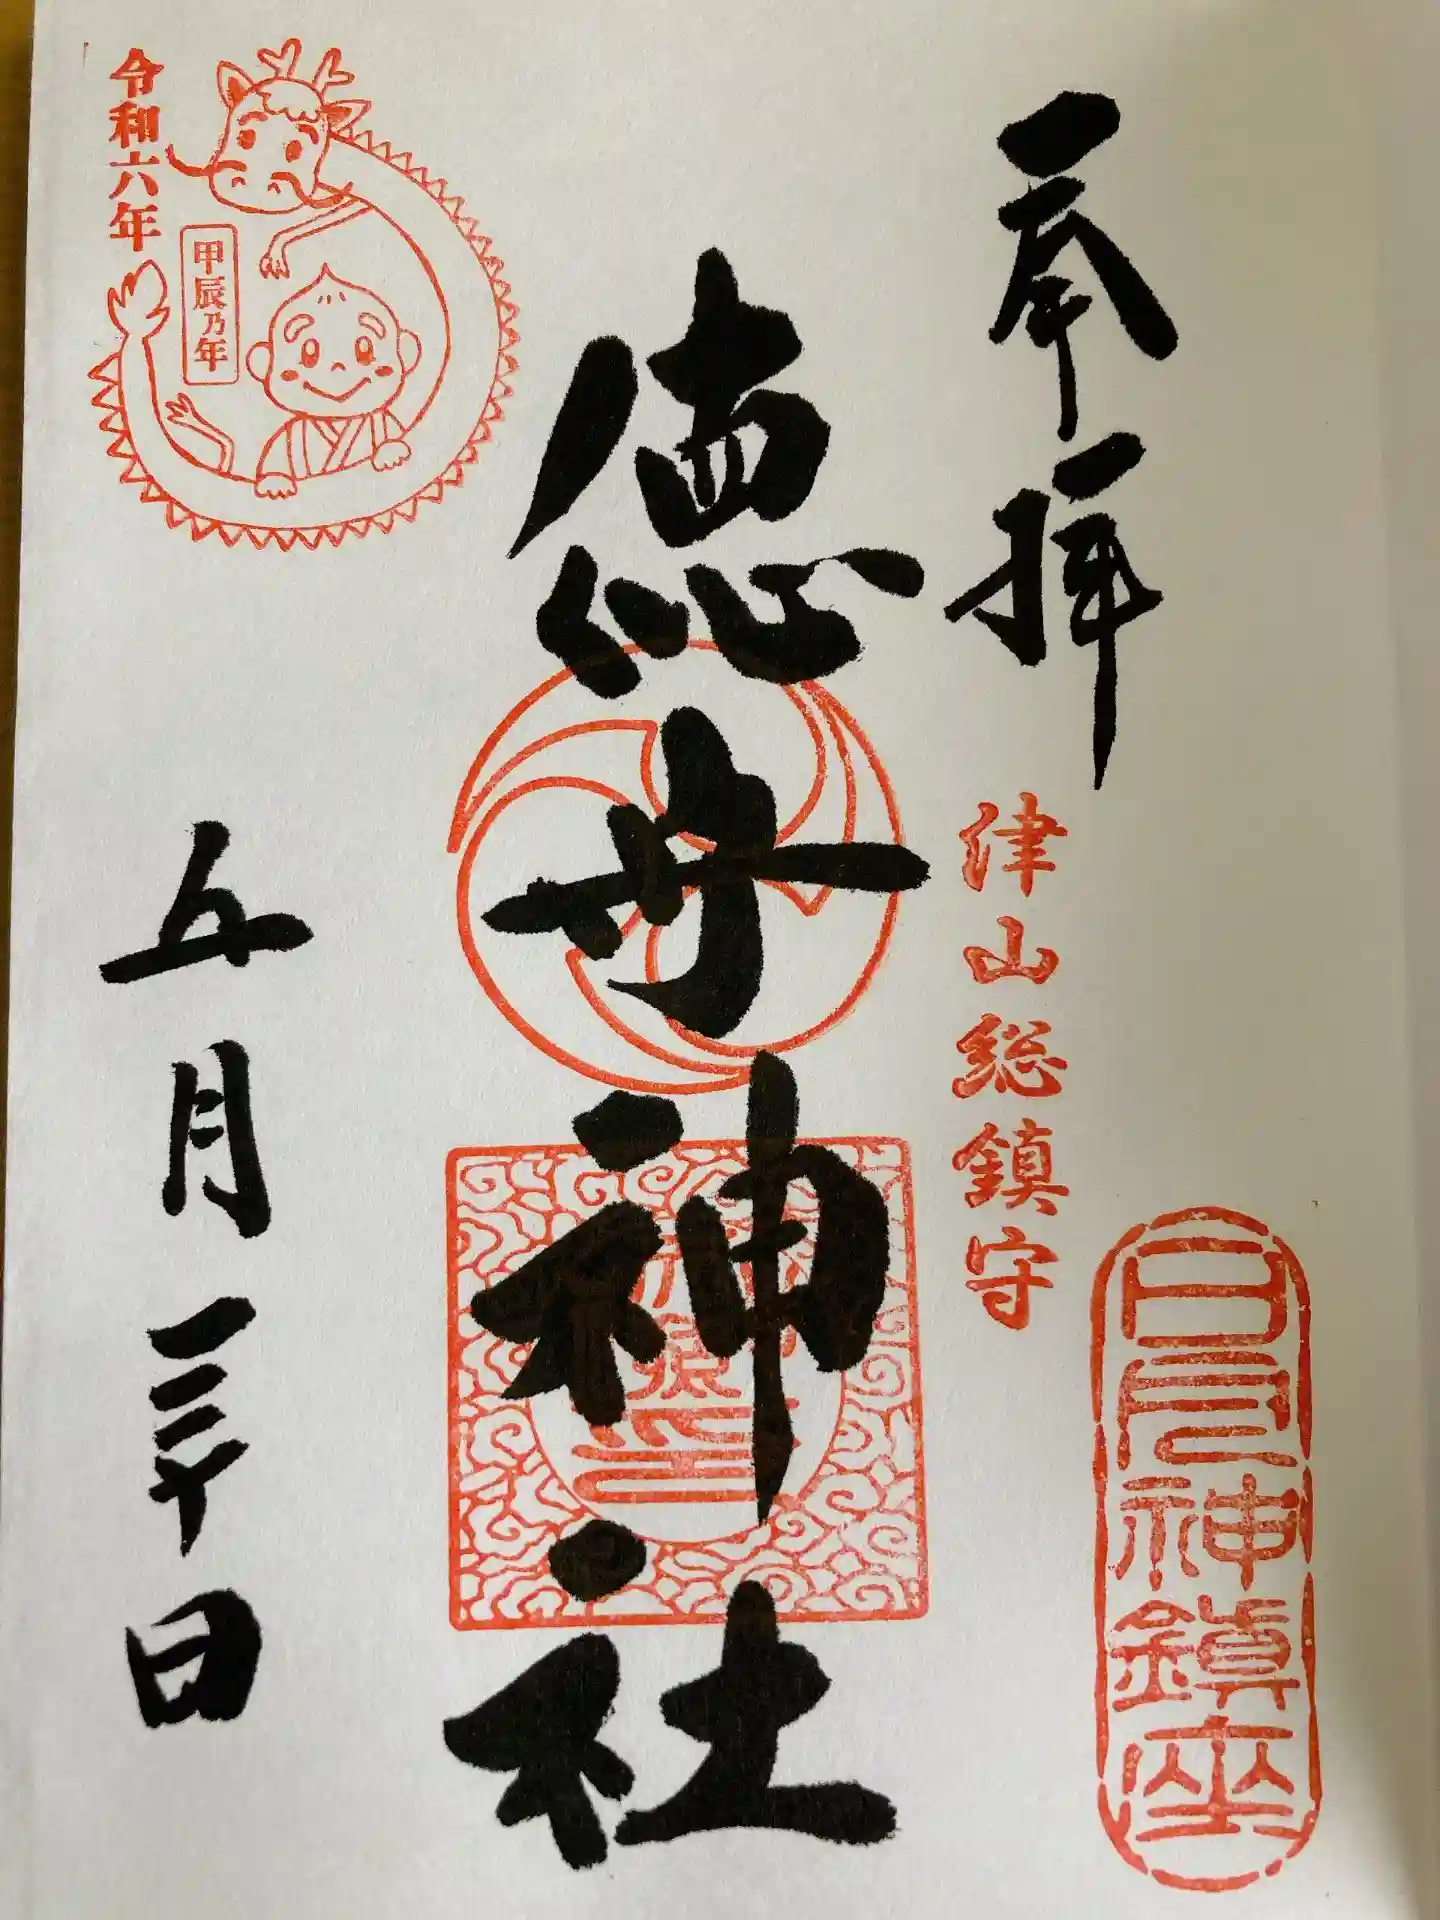 奉拝
津山総鎮守
日元神鎮座
徳守神社
令和六年
甲辰乃年
五月三十日